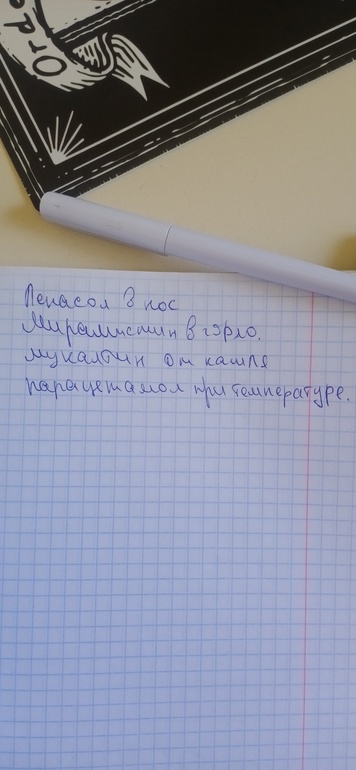 Ordo
Пенасол в нос
Мирамистин в горло.
мукалтин от кашля
парацетамол при температуре.